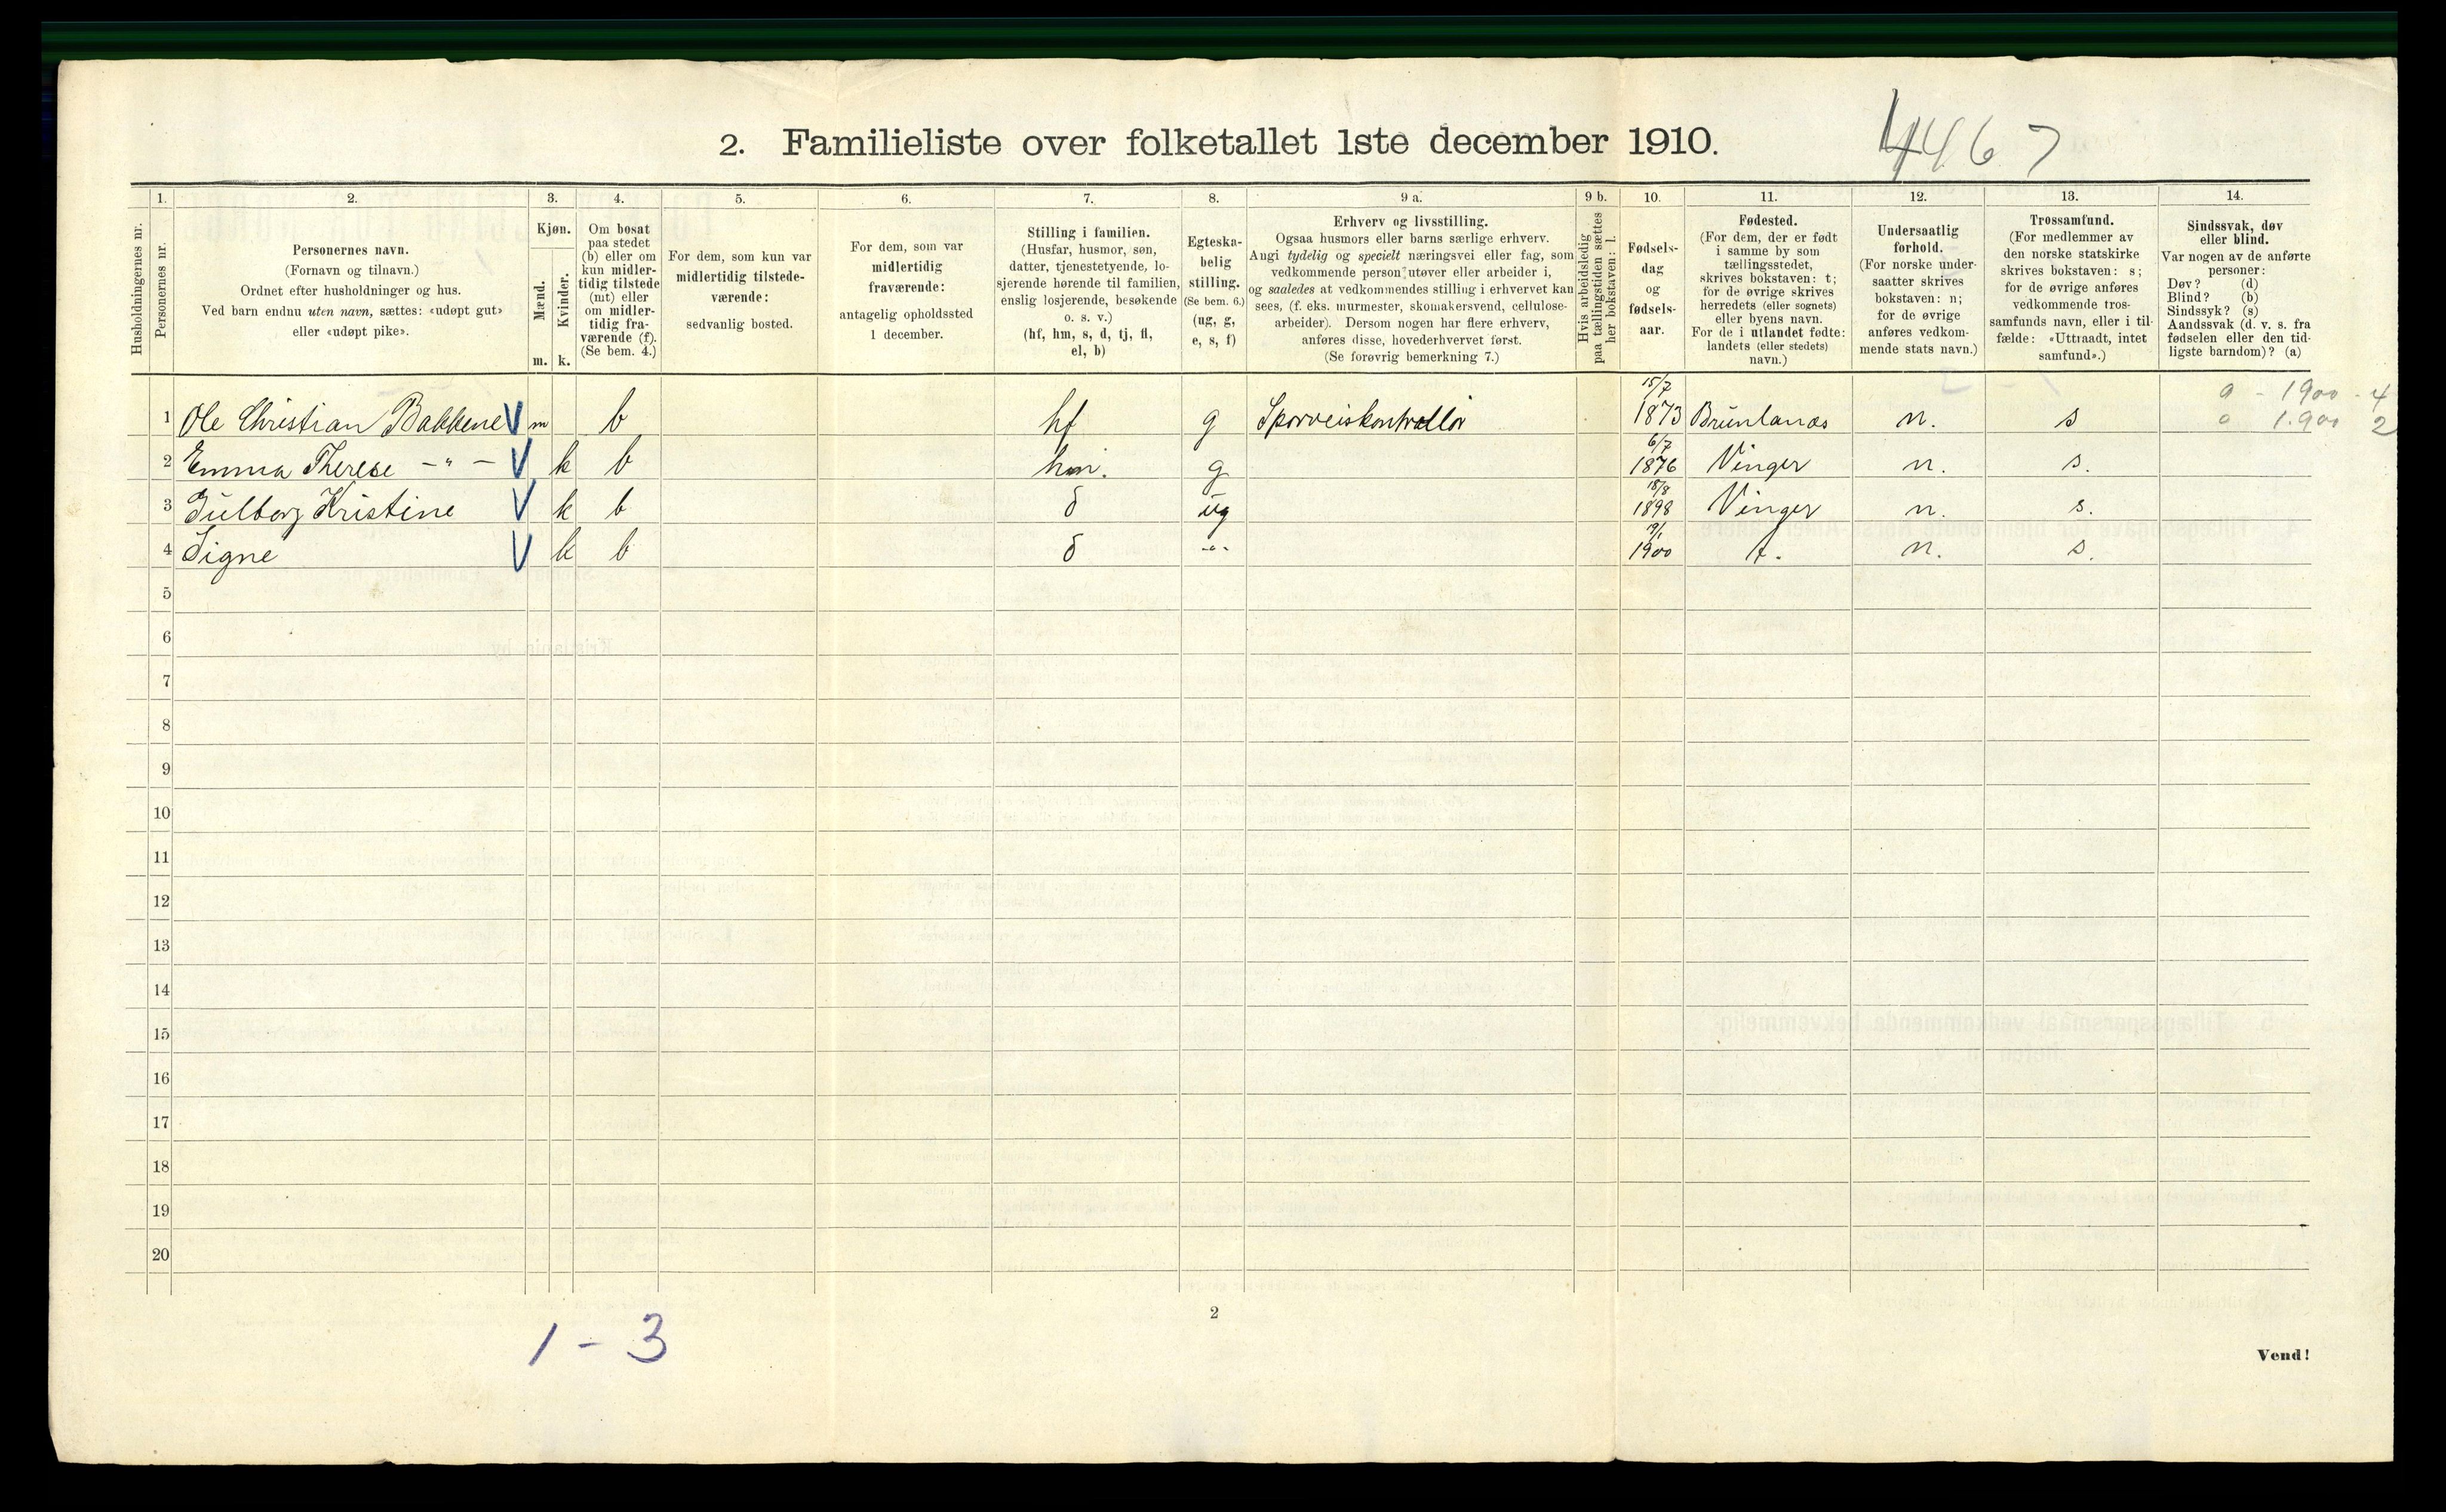 2. Familieliste over folketallet 1ste december 1910.
4467
Husholdningernes nr.
1.
Personernes nr.
2.
Personernes navn.
(Fornavn og tilnavn.)
Ordnet efter husholdninger og hus.
Ved barn endnu uten navn, sættes: «udøpt gut»
eller «udøpt pike».
3.
Kjøn.
Mænd.
m.
Kvinder.
k.
4.
Om bosat
paa stedet
(b) eller om
kun midler-
tidig tilstede
(mt) eller
om midler-
tidig fra-
værende (f).
(Se bem. 4.)
5.
For dem, som kun var
midlertidig tilstede-
værende:
sedvanlig bosted.
6.
For dem, som var
midlertidig
fraværende:
antagelig opholdssted
1 december.
7.
Stilling i familien.
(Husfar, husmor, søn,
datter, tjenestetyende, lo-
sjerende hørende til familien,
enslig losjerende, besøkende
o. s. v.)
(hf, hm, s, d, tj, fl,
el, b)
8.
Egteska-
belig
stilling.
(Se bem. 6.)
(ug, g,
e, s, f)
9 a.
Erhverv og livsstilling.
Ogsaa husmors eller barns særlige erhverv.
Angi tydelig og specielt næringsvei eller fag, som
vedkommende person utøver eller arbeider i,
og saaledes at vedkommendes stilling i erhvervet kan
sees, (f. eks. murmester, skomakersvend, cellulose-
arbeider). Dersom nogen har flere erhverv,
anføres disse, hovederhvervet først.
(Se forøvrig bemerkning 7.)
9 b.
Hvis arbeidsledig
paa tællingstiden sættes
her bokstaven: l.
10.
Fødsels-
dag
og
fødsels-
aar.
11.
Fødested.
(For dem, der er født
i samme by som
tællingsstedet,
skrives bokstaven: t;
for de øvrige skrives
herredets (eller sognets)
eller byens navn.
For de i utlandet fødte:
landets (eller stedets)
navn.)
12.
Undersaatlig
forhold.
(For norske under-
saatter skrives
bokstaven: n;
for de øvrige
anføres vedkom-
mende stats navn.)
13.
Trossamfund.
(For medlemmer av
den norske statskirke
skrives bokstaven: s;
for de øvrige anføres
vedkommende tros-
samfunds navn, eller i til-
fælde: «Uttraadt, intet
samfund».)
14.
Sindssvak, døv
eller blind.
Var nogen av de anførte
personer:
Døv? (d)
Blind? (b)
Sindssyk? (s)
Aandssvak (d. v. s. fra
fødselen eller den tid-
ligste barndom)? (a)
0 - 1900 - 4
0 1.900 2
1 Ole Christian Bakkene V m b hf g Sporveiskontrollør 15/7 1873 Brunlanæs n. s
2 Emma Therese -"- V k b hm. g 6/7 1876 Vinger n. s.
3 Gulborg Kristine V k b d ug 18/8 1898 Vinger n. s.
4 Signe V k b d -"- 9/1 1900 t. n. s.
5
6
7
8
9
10
11
12
13
14
15
16
17
18
19
20
2
1 - 3
Vend!